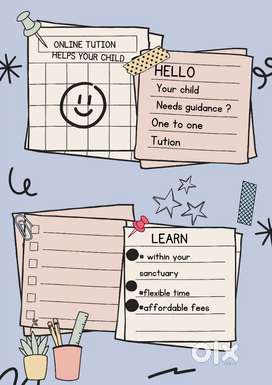 ONLINE TUTION
HELPS YOUR CHILD
HELLO
Your child
Needs guidance ?
One to one
Tution
LEARN
# within your
sanctuary
#flexible time
#affordable fees
olx